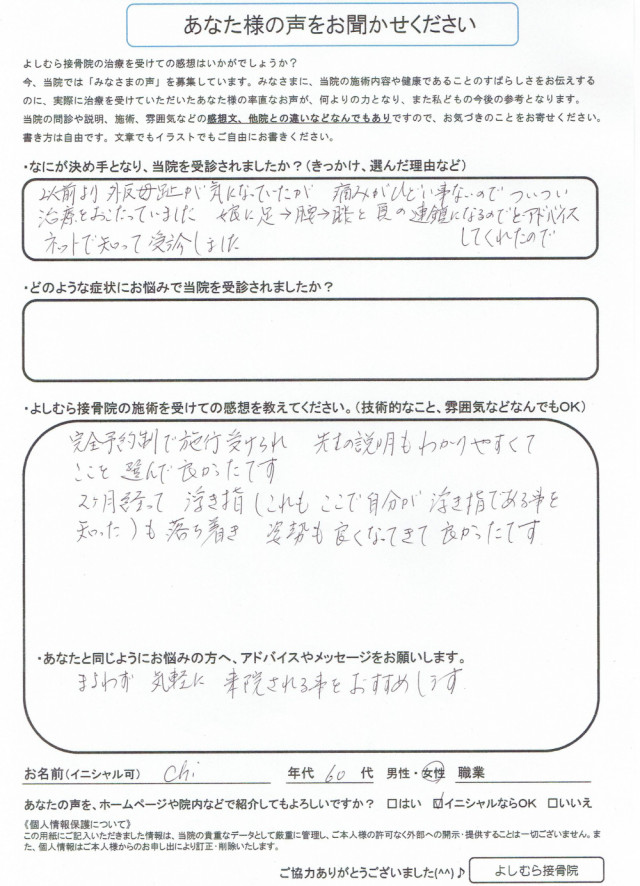 あなた様の声をお聞かせください
よしむら接骨院の治療を受けての感想はいかがでしょうか？
今、当院では「みなさまの声」を募集しています。みなさまに、当院の施術内容や健康であることのすばらしさをお伝えする
のに、実際に治療を受けていただいたあなた様の率直なお声が、何よりの力となり、また私どもの今後の参考となります。
当院の問診や説明、施術、雰囲気などの感想文、他院との違いなどなんでもありですので、お気づきのことをお寄せください。
書き方は自由です。文章でもイラストでもご自由にお書きください。
・なにが決め手となり、当院を受診されましたか？（きっかけ、選んだ理由など）
以前より 外反母趾が気になっていたが 痛みがひどい事ないので ついつい
治療をおこたっていました 娘に足→腰→膝と負の連鎖になるのでとアドバイス
してくれたので
ネットで知って受診しました
・どのような症状にお悩みで当院を受診されましたか？
・よしむら接骨院の施術を受けての感想を教えてください。（技術的なこと、雰囲気などなんでもOK）
完全予約制で施行受けられ 先生の説明もわかりやすくて
ここを 選んで良かったです
2ヶ月経って 浮き指（これも ここで自分が 浮き指である事を
知った）も落ち着き 姿勢も良くなってきて良かったです
・あなたと同じようにお悩みの方へ、アドバイスやメッセージをお願いします。
まよわず 気軽に 来院される事をおすすめします
お名前（イニシャル可） Chi 年代 60 代 男性・女性 職業
あなたの声を、ホームページや院内などで紹介してもよろしいですか？ □はい ☑イニシャルならOK □いいえ
《個人情報保護について》
この用紙にご記入いただきました情報は、当院の貴重なデータとして厳重に管理し、ご本人様の許可なく外部への開示・提供することは一切ございません。ま
た、個人情報はご本人様からのお申し出により訂正・削除いたします。
ご協力ありがとうございました(^^)♪ よしむら接骨院